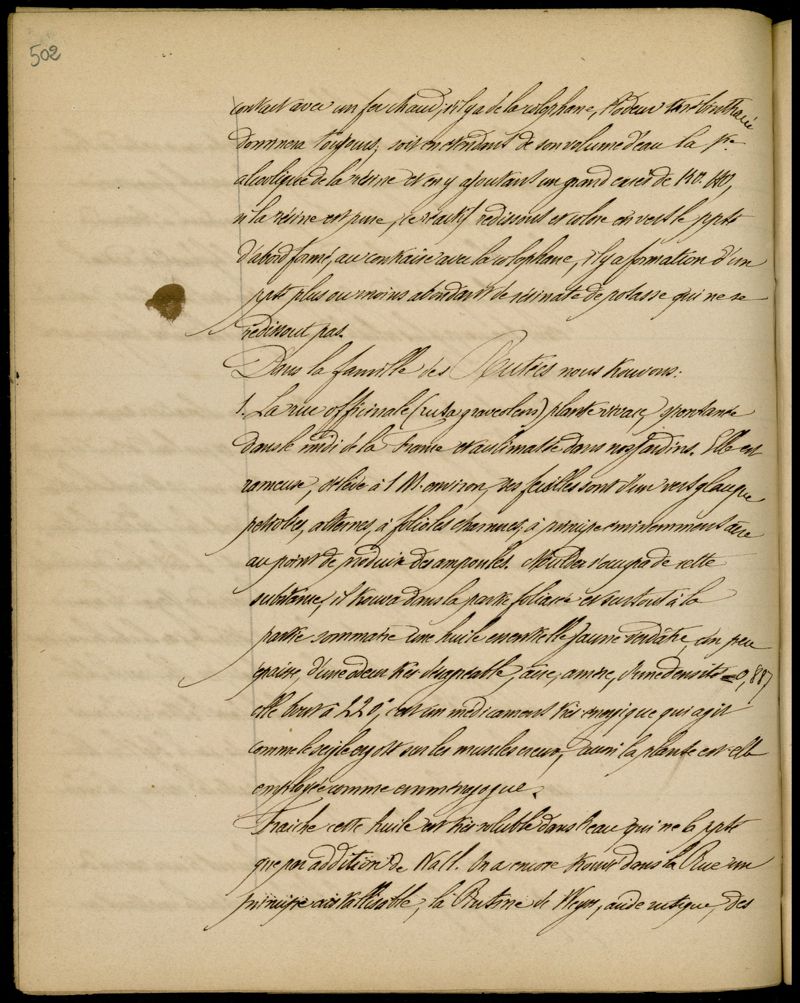 502
contact avec un fer chaud, s'il y a de la colophane, l'odeur térébenthacée
donnera toujours, soit en étendant de son volume d'eau la
alcoolique de la résine et en y ajoutant un grand excès de KO. HO,
si la résine est pure, ce réactif redissout et colore en vert le ppté
d'abord formé, au contraire avec la colophane, il y a formation d'un
ppté plus ou moins abondant de résinate de potasse qui ne se
redissout pas.
Dans la famille des Rutées nous trouvons:
1. La rue officinale (ruta graveolens) plante vivace, spontanée
dans le midi de la France et acclimatée dans nos jardins. Elle est
rameuse, s'élève à 1 M. environ, ses feuilles sont d'un vert glauque
petiolées, alternes, à folioles charnues, à principe éminemment âcre
au point de produire des ampoules. s'occupa de cette
substance, il trouva dans la partie foliacée et surtout à la
partie sommaire une huile essentielle jaune verdâtre, un peu
épaisse, d'une odeur très désagréable, âcre, amère, d'une densité = 0,887
elle bout à 220°, c'est un médicament très énergique qui agit
comme le seigle ergoté sur les muscles creux, aussi la plante est elle
employée comme emménagogue.
Fraîche cette huile est très soluble dans l'eau qui ne la ppté
que par addition de NaCl. On a encore trouvé dans la Rue un
principe cristallisable, la Rutine de Weiss, acide rutique, des